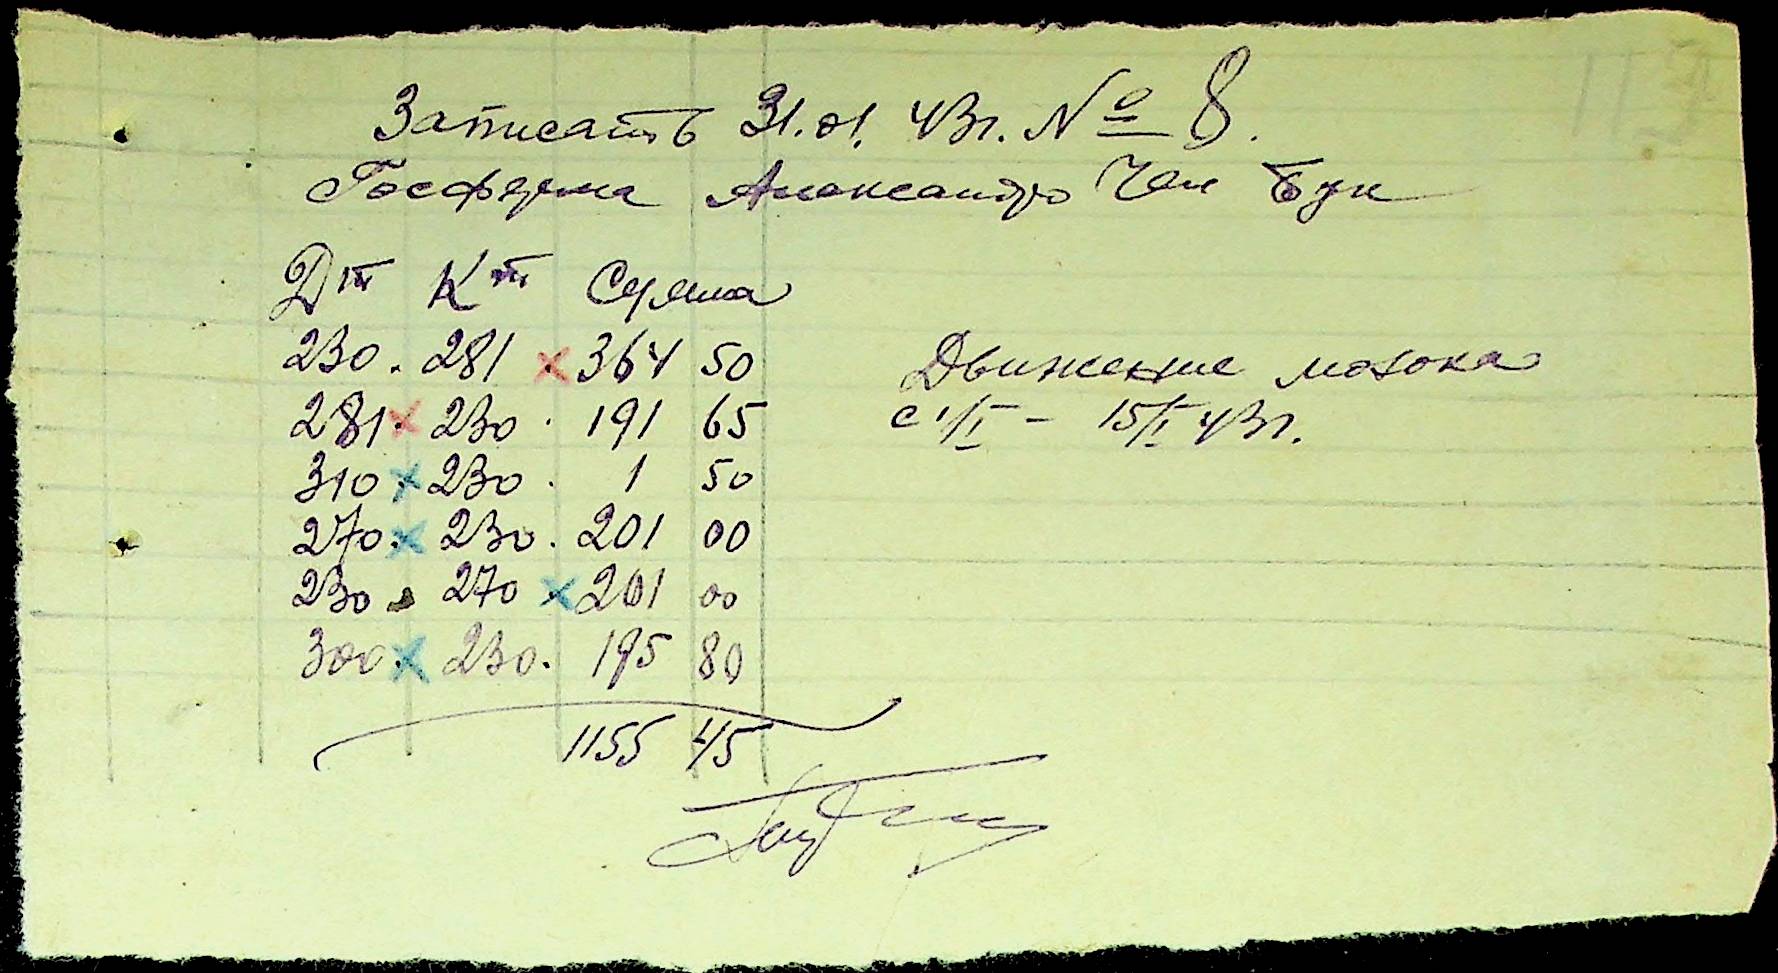 Записать 31.01.43г. № 8.
Госферма Александро Чел Бук
Дт Кт Сумма
230. 281 × 364 50
281 × 230 . 191 65
310 × 230 . 1 50
270 × 230 . 201 00
230 . 270 × 201 00
300 × 230 . 195 80
1155 45
Движение молока
с 1/I – 15/I 43г.